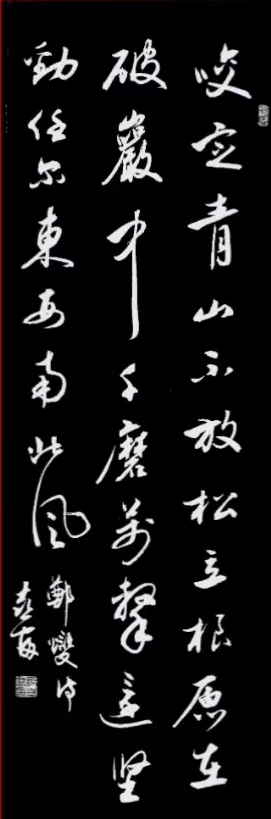 咬定青山不放松立根原在
破巖中千磨萬擊還坚
勁任尔東西南北风
鄭燮诗